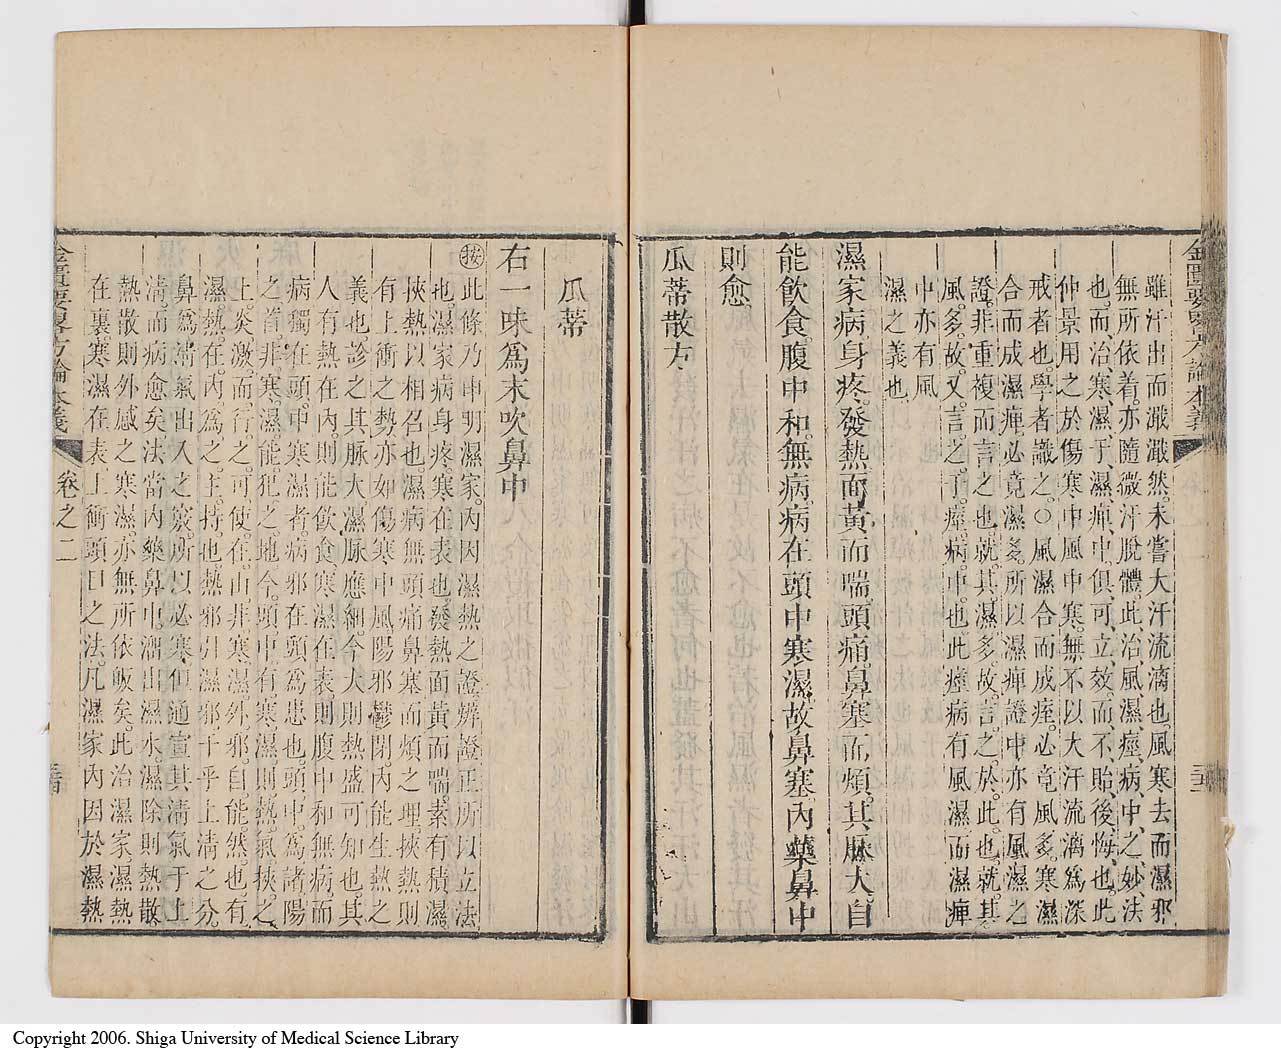 金匱要畧方論本義
三十三
雖汗出而濈濈然未嘗大汗流漓也風寒去而濕邪
無所依着亦隨微汗脫體此治風濕痙病中之妙法
也而治寒濕于濕痺中俱可立效而不貽後悔也此
仲景用之於傷寒中風中寒無不以大汗流漓爲深
戒者也學者識之○風濕合而成痙必竟風多寒濕
合而成濕痺必竟濕多所以濕痺證中亦有風濕之
證非重複而言之也就其濕多故言之於此也就其
風多故又言之于痙病中也此痙病有風濕而濕痺
中亦有風
濕之義也
濕家病身疼發熱面黃而喘頭痛鼻塞而煩其脉大自
能飲食腹中和無病病在頭中寒濕故鼻塞內藥鼻中
則愈
瓜蒂散方
瓜蒂
右一味爲末吹鼻中
按此條乃申明濕家內因濕熱之證辨證正所以立法
也濕家病身疼寒在表也發熱面黃而喘素有積濕
挾熱以相召也濕病無頭痛鼻塞而煩之理挾熱則
有上衝之勢亦如傷寒中風陽邪鬱閉內能生熱之
義也診之其脉大濕脉應細今大則熱盛可知也其
人有熱在內則能飲食寒濕在表則腹中和無病而
病獨在頭中寒濕者病邪在頭爲患也頭中爲諸陽
之首非寒濕能犯之地今頭中有寒濕則熱氣挾之
上炎激而行之可使在山非寒濕外邪自能然也有
濕熱在內爲之主持也熱邪引濕邪干乎上清之分
鼻爲清氣出入之竅所以必塞但通宣其清氣于上
清而病愈矣法當內藥鼻中瀉出濕水濕除則熱散
熱散則外感之寒濕亦無所依皈矣此治濕家濕熱
在裏寒濕在表上衝頭目之法凡濕家內因於濕熱
金匱要畧方論本義
卷之二
三十四
Copyright 2006. Shiga University of Medical Science Library